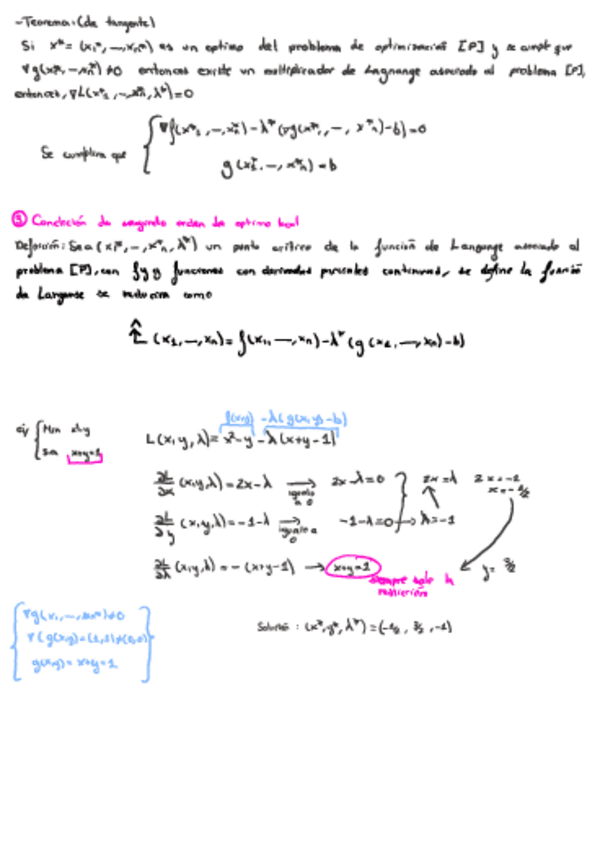 -Teorema: (de tangente)
Si x* = (x₁*, -, xn*) es un optimo del problema de optimización [P] y se cumple que
∇g(x₁*, -, xn*) ≠0 entonces existe un multiplicador de Lagrange asociado al problema [P],
entonces, ∇L(x*₁, -, xn*, λ*)=0
∇f(x*₁, -, xn*) - λ* (∇g(x*₁, -, x*n)-b)=0
Se cumplira que
g(x₁*, -, x*n) = b
③ Condición de segundo orden de optimo local
Definición: Sea (x₁*, -, x*n, λ*) un punto critico de la función de Langange asociado al
problema [P], con f y g funciones con derivadas parciales continuas, se define la función
de Langange se como
L̂ (x₁, -, xn) = f(x₁, -, xn) - λ* (g(x₁, -, xn)-b)
f(x,y) -λ(g(x,y)-b)
ej Min x²-y
L(x,y,λ)= x²-y -λ(x+y-1)
sa x+y=1
∂L/∂x (x,y,λ)=2x-λ → igualo a 0 2x-λ=0 2x=λ 2x=-1
x=-1/2
∂L/∂y (x,y,λ)=-1-λ → igualo a 0 -1-λ=0 → λ=-1
∂L/∂λ (x,y,λ)= -(x+y-1) → x+y=1 y= 3/2
siempre sale la restricción
∇g(x₁, -, xn*)≠0
∇(g(x,y)=(1,1)≠(0,0)
g(x,y)= x+y=1
Solución: (x*,y*,λ*)=(-1/2, 3/2, -1)